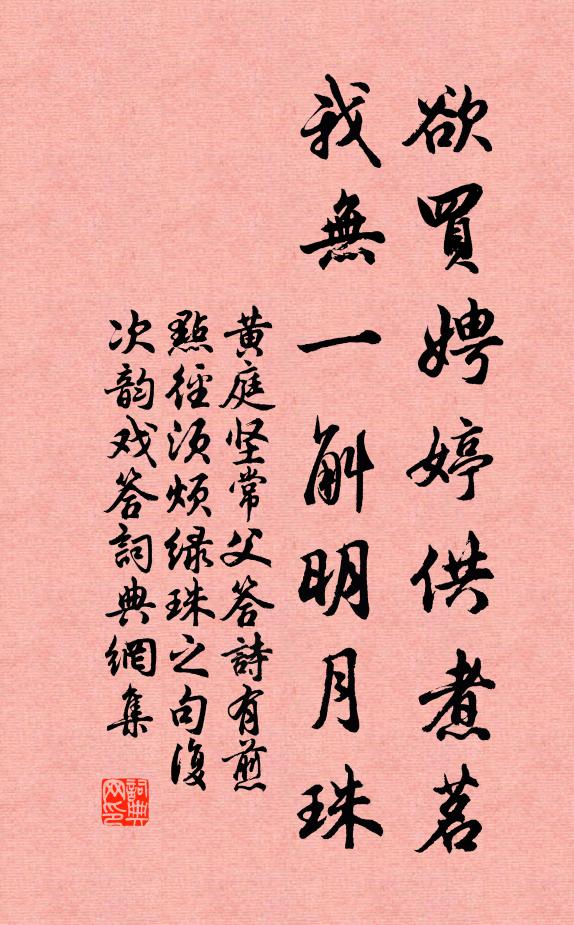 欲買娉婷供煮茗
我無一斛明月珠
黄庭坚常父答詩有煎
點徑須煩緑珠之句復
次韵戏答詞典網集
詞典
网印